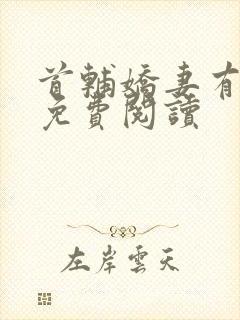 首輔嬌妻有
免費閱讀
左岸雲天